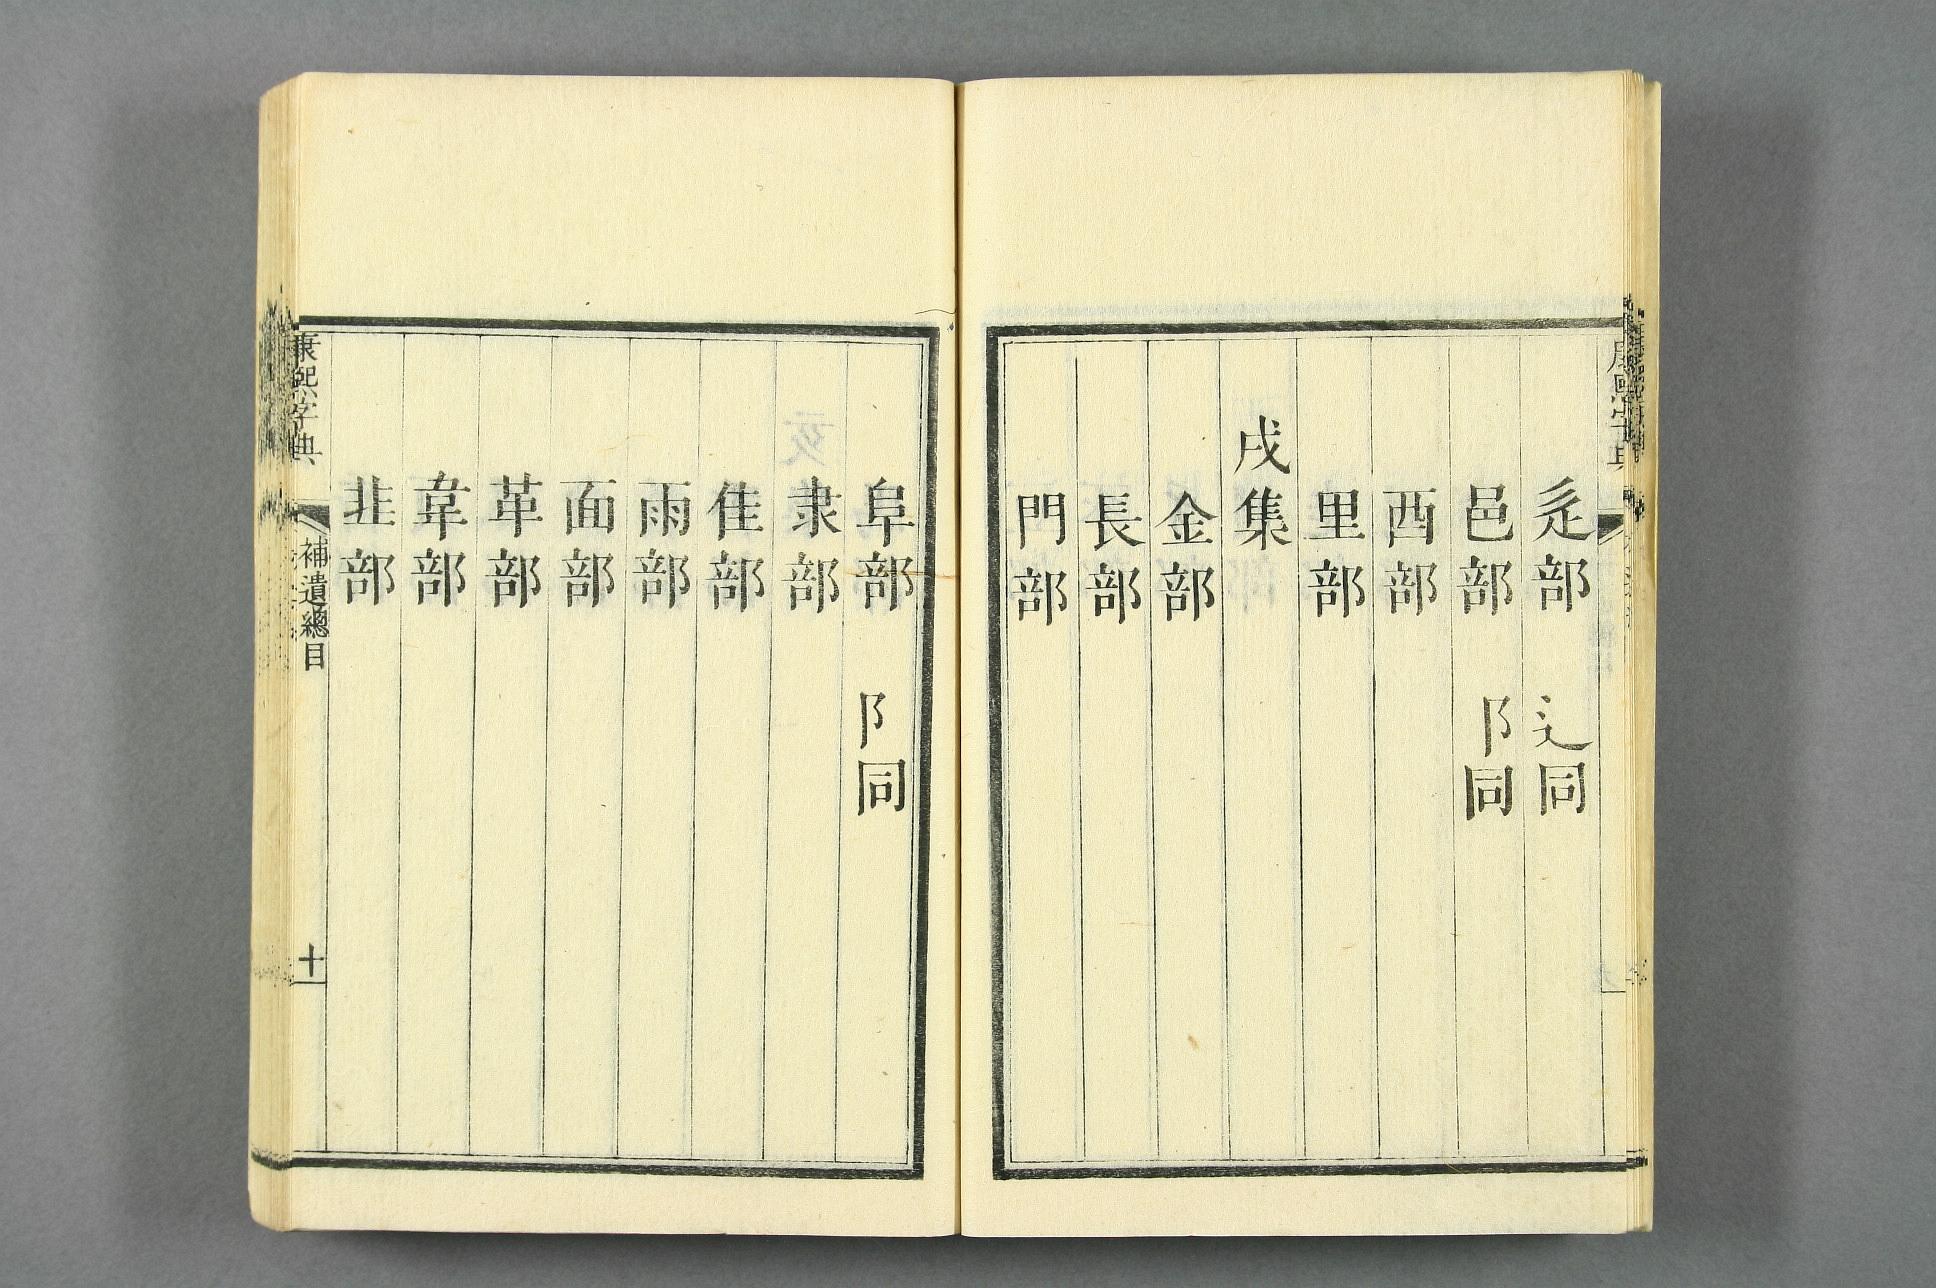 辵部 辶同
邑部 阝同
酉部
里部
戌集
金部
長部
門部
阜部 阝同
隶部
隹部
雨部
面部
革部
韋部
韭部
康熙字典 補遺總目 十